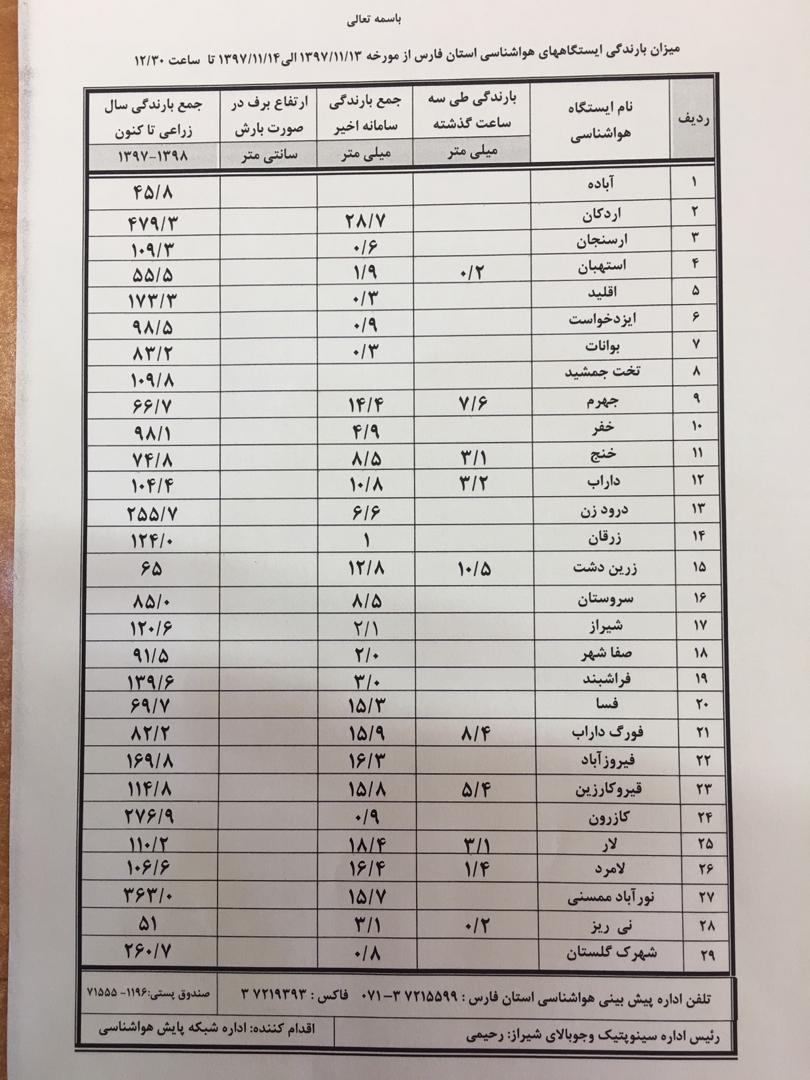 باسمه تعالی
میزان بارندگی ایستگاههای هواشناسی استان فارس از مورخه ۱۳۹۷/۱۱/۱۳ الی ۱۳۹۷/۱۱/۱۴ تا ساعت ۱۲/۳۰
ردیف نام ایستگاه هواشناسی بارندگی طی سه ساعت گذشته جمع بارندگی سامانه اخیر ارتفاع برف در صورت بارش جمع بارندگی سال زراعی تا کنون
میلی متر میلی متر سانتی متر ۱۳۹۷-۱۳۹۸
۱ آباده ۴۵/۸
۲ اردکان ۲۸/۷ ۴۷۹/۳
۳ ارسنجان ۰/۶ ۱۰۹/۳
۴ استهبان ۰/۲ ۱/۹ ۵۵/۵
۵ اقلید ۰/۳ ۱۷۳/۳
۶ ایزدخواست ۰/۹ ۹۸/۵
۷ بوانات ۰/۳ ۸۳/۲
۸ تخت جمشید ۱۰۹/۸
۹ جهرم ۷/۶ ۱۴/۴ ۶۶/۷
۱۰ خفر ۴/۹ ۹۸/۱
۱۱ خنج ۳/۱ ۸/۵ ۷۴/۸
۱۲ داراب ۳/۲ ۱۰/۸ ۱۰۴/۴
۱۳ درود زن ۶/۶ ۲۵۵/۷
۱۴ زرقان ۱ ۱۲۴/۰
۱۵ زرین دشت ۱۰/۵ ۱۲/۸ ۶۵
۱۶ سروستان ۸/۵ ۸۵/۰
۱۷ شیراز ۲/۱ ۱۲۰/۶
۱۸ صفا شهر ۲/۰ ۹۱/۵
۱۹ فراشبند ۳/۰ ۱۳۹/۶
۲۰ فسا ۱۵/۳ ۶۹/۷
۲۱ فورگ داراب ۸/۴ ۱۵/۹ ۸۲/۲
۲۲ فیروزآباد ۱۶/۳ ۱۶۹/۸
۲۳ قیروکارزین ۵/۴ ۱۵/۸ ۱۱۴/۸
۲۴ کازرون ۰/۹ ۲۷۶/۹
۲۵ لار ۳/۱ ۱۸/۴ ۱۱۰/۲
۲۶ لامرد ۱/۴ ۱۶/۴ ۱۰۶/۶
۲۷ نورآباد ممسنی ۱۵/۷ ۳۶۳/۰
۲۸ نی ریز ۰/۲ ۳/۱ ۵۱
۲۹ شهرک گلستان ۰/۸ ۲۶۰/۷
تلفن اداره پیش بینی هواشناسی استان فارس : ۳۷۲۱۵۵۹۹-۰۷۱ فاکس : ۳۷۲۱۹۳۹۳ صندوق پستی:۱۱۹۶-۷۱۵۵۵
رئیس اداره سینوپتیک وجوبالای شیراز: رحیمی اقدام کننده: اداره شبکه پایش هواشناسی